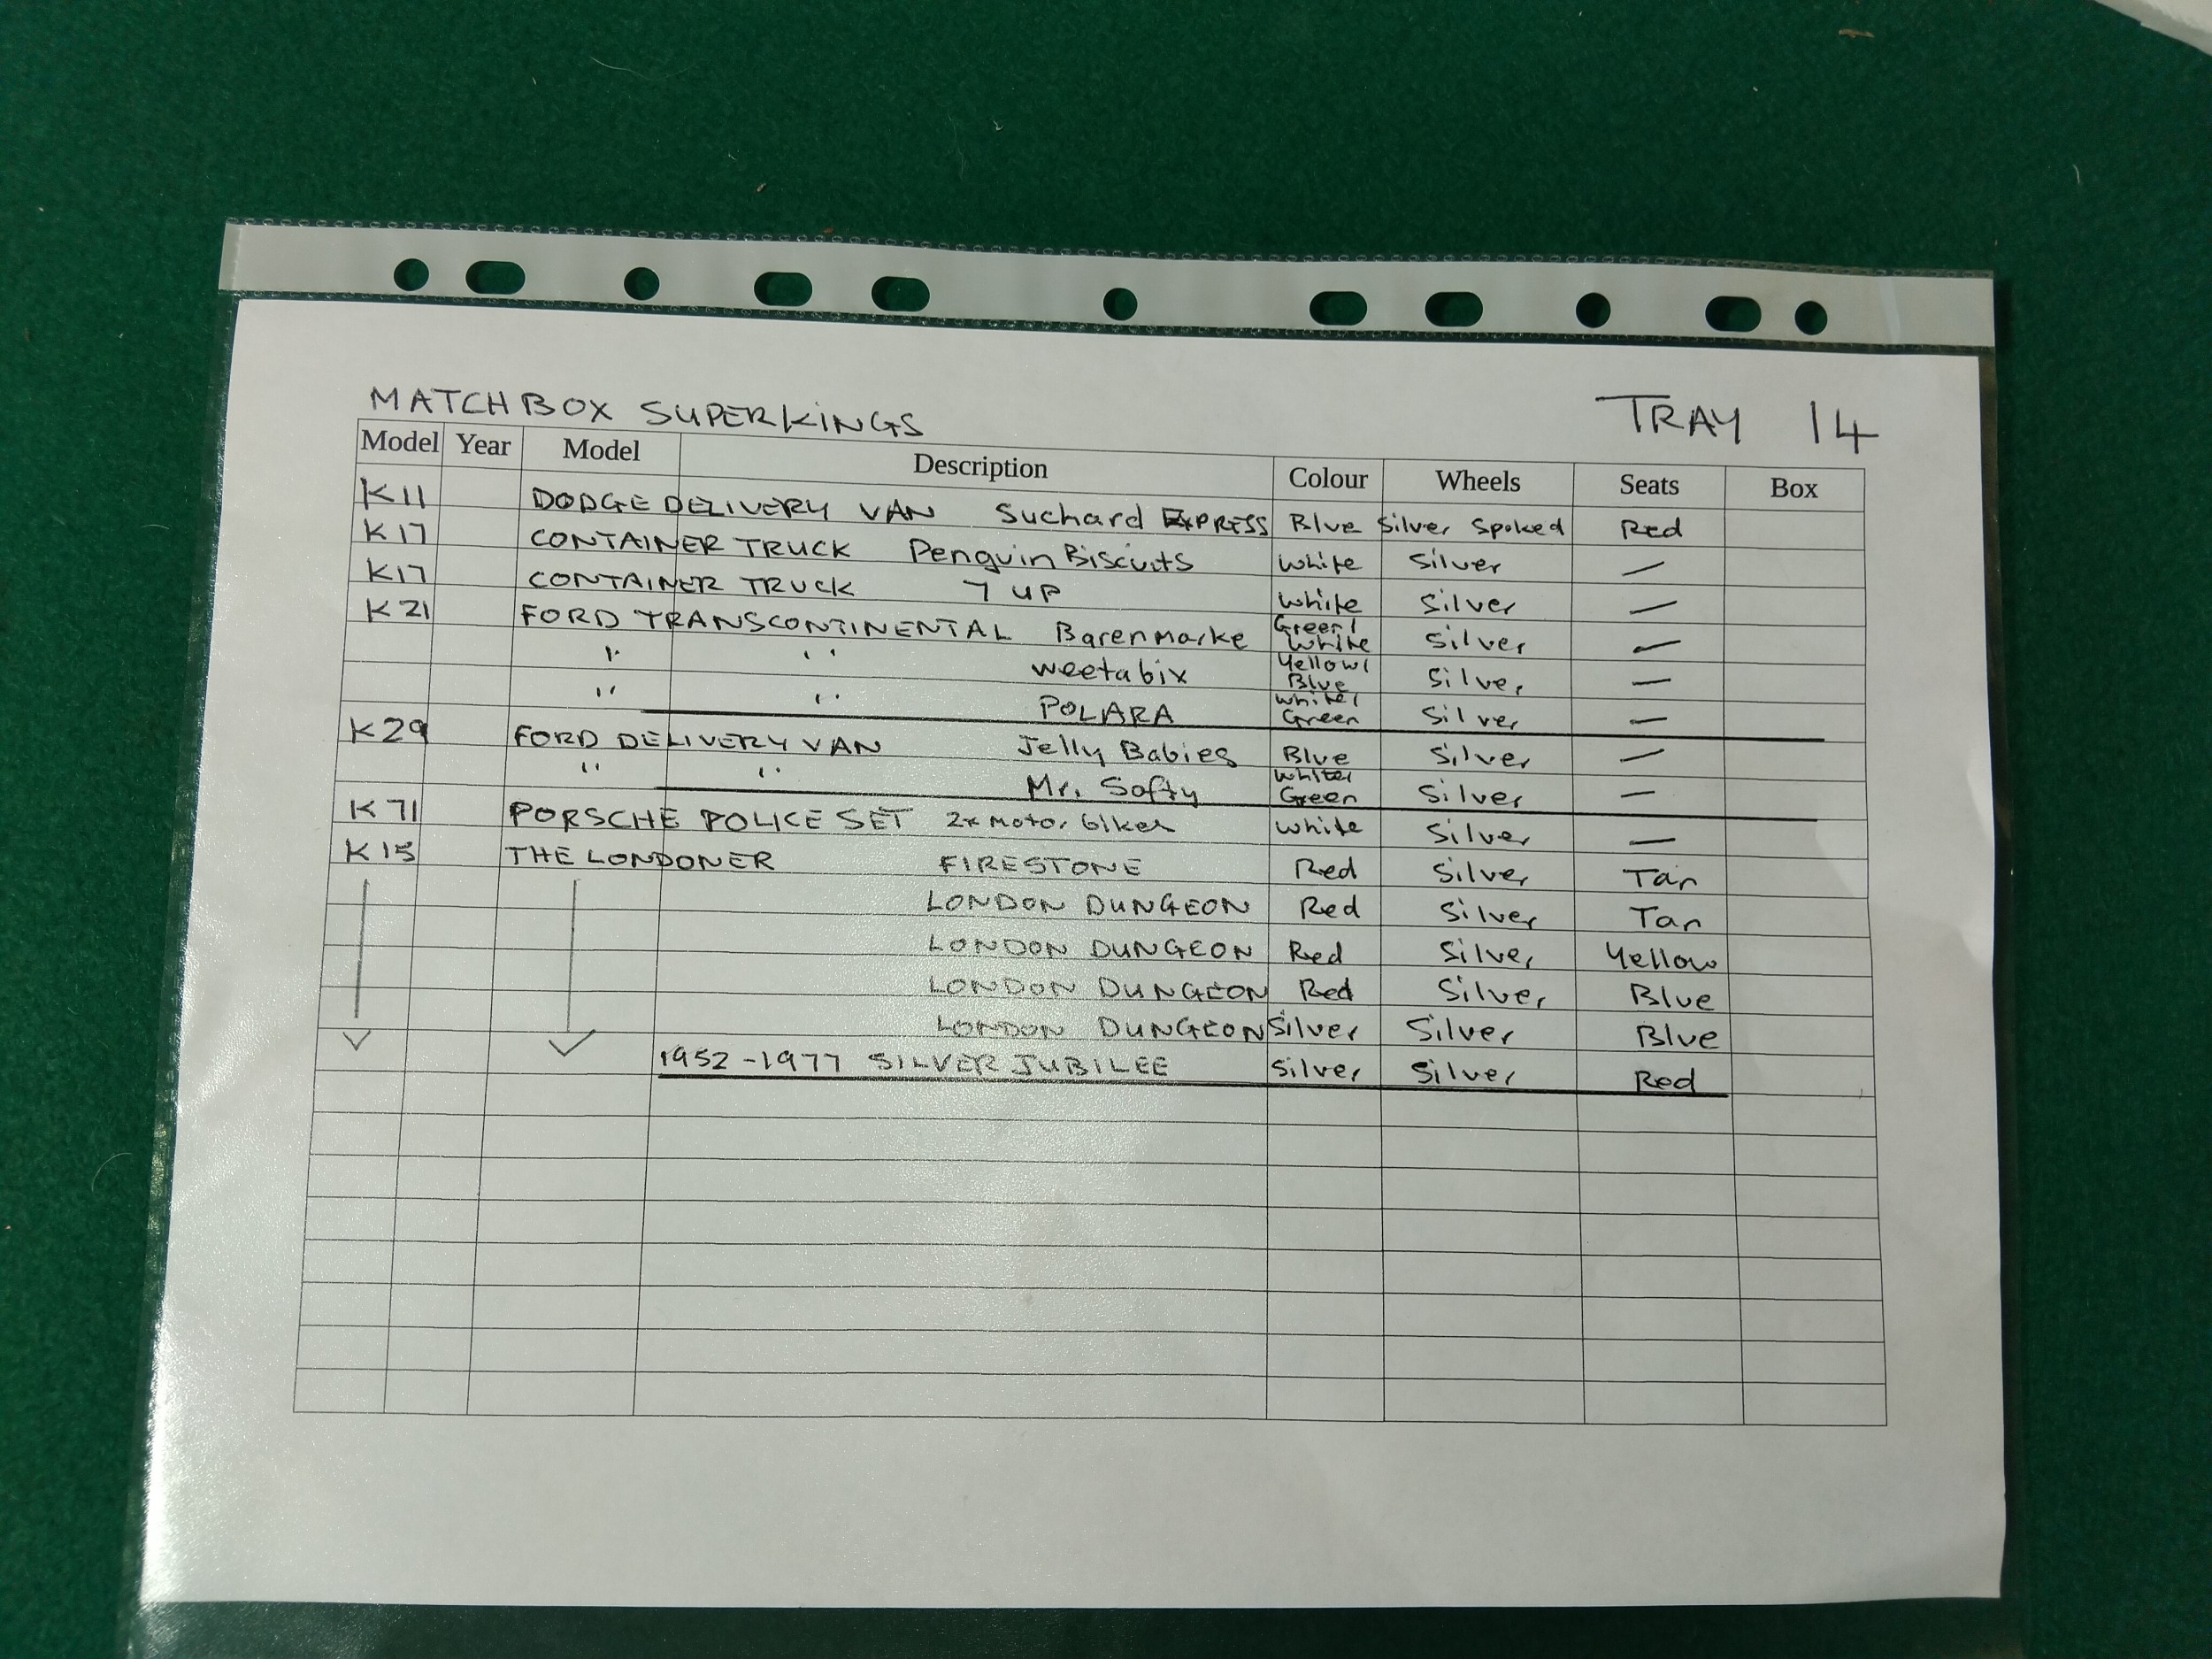 MATCHBOX SUPERKINGS TRAY 14
Model Year Model Description Colour Wheels Seats Box
K11 DODGE DELIVERY VAN Suchard EXPRESS Blue Silver Spoked Red
K17 CONTAINER TRUCK Penguin Biscuits White Silver —
K17 CONTAINER TRUCK 7 UP White Silver —
K21 FORD TRANSCONTINENTAL Barenmarke Green/ White Silver —
" " weetabix Yellow/ Blue Silver —
" " POLARA White/ Green Silver —
K29 FORD DELIVERY VAN Jelly Babies Blue Silver —
" " Mr. Softy White/ Green Silver —
K71 PORSCHE POLICE SET 2x Motor bikes White Silver —
K15 THE LONDONER FIRESTONE Red Silver Tan
LONDON DUNGEON Red Silver Tan
LONDON DUNGEON Red Silver Yellow
LONDON DUNGEON Red Silver Blue
LONDON DUNGEON Silver Silver Blue
1952-1977 SILVER JUBILEE Silver Silver Red